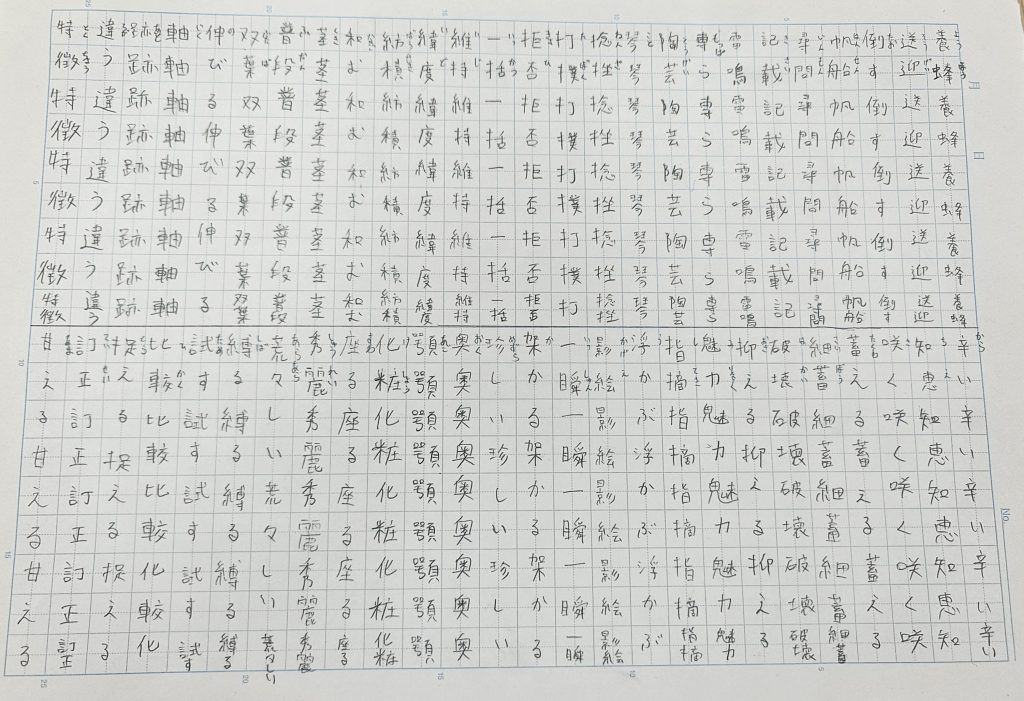 養蜂養蜂養蜂養蜂養蜂
辛い辛い辛い辛い辛い
送迎送迎送迎送迎送迎
知恵知恵知恵知恵知
倒す倒す倒す倒す倒す
咲く咲く咲く咲く咲
帆船帆船帆船帆船帆船
蓄える蓄える蓄える
尋問尋問尋問尋問尋問
細蓄細蓄細蓄細蓄細蓄
記載記載記載記載記
破壊破壊破壊破壊破壊
雷鳴雷鳴雷鳴雷鳴雷鳴
抑える抑える抑える
専ら専ら専ら専ら専ら
魅力魅力魅力魅力魅力
陶芸陶芸陶芸陶芸陶芸
指摘指摘指摘指摘指摘
琴琴琴琴琴琴琴琴琴
浮かぶ浮かぶ浮かぶ
捻挫捻挫捻挫捻挫捻挫
影絵影絵影絵影絵影絵
打撲打撲打撲打撲打
一瞬一瞬一瞬一瞬一瞬
拒否拒否拒否拒否拒否
架かる架かる架かる
一括一括一括一括一括
珍しい珍しい珍しい
維持維持維持維持維持
奥奥奥奥奥奥奥奥奥
緯度緯度緯度緯度緯度
顎顎顎顎顎顎顎顎顎
紡績紡績紡績紡績紡績
化粧化粧化粧化粧化粧
和む和む和む和む和む
座る座る座る座る座る
茎茎茎茎茎茎茎茎茎
秀麗秀麗秀麗秀麗秀麗
普段普段普段普段普段
荒々しい荒々しい荒々しい
双葉双葉双葉双葉双葉
縛る縛る縛る縛る縛る
伸びる伸びる伸びる
試す試す試す試す試す
軸軸軸軸軸軸軸軸軸
比較比較比較化較化
跡跡跡跡跡跡跡跡跡
捉える捉える捉える
違う違う違う違う違う
訂正訂正訂正訂正訂正
特徴特徴特徴特徴特徴
甘える甘える甘える
月 日
No.